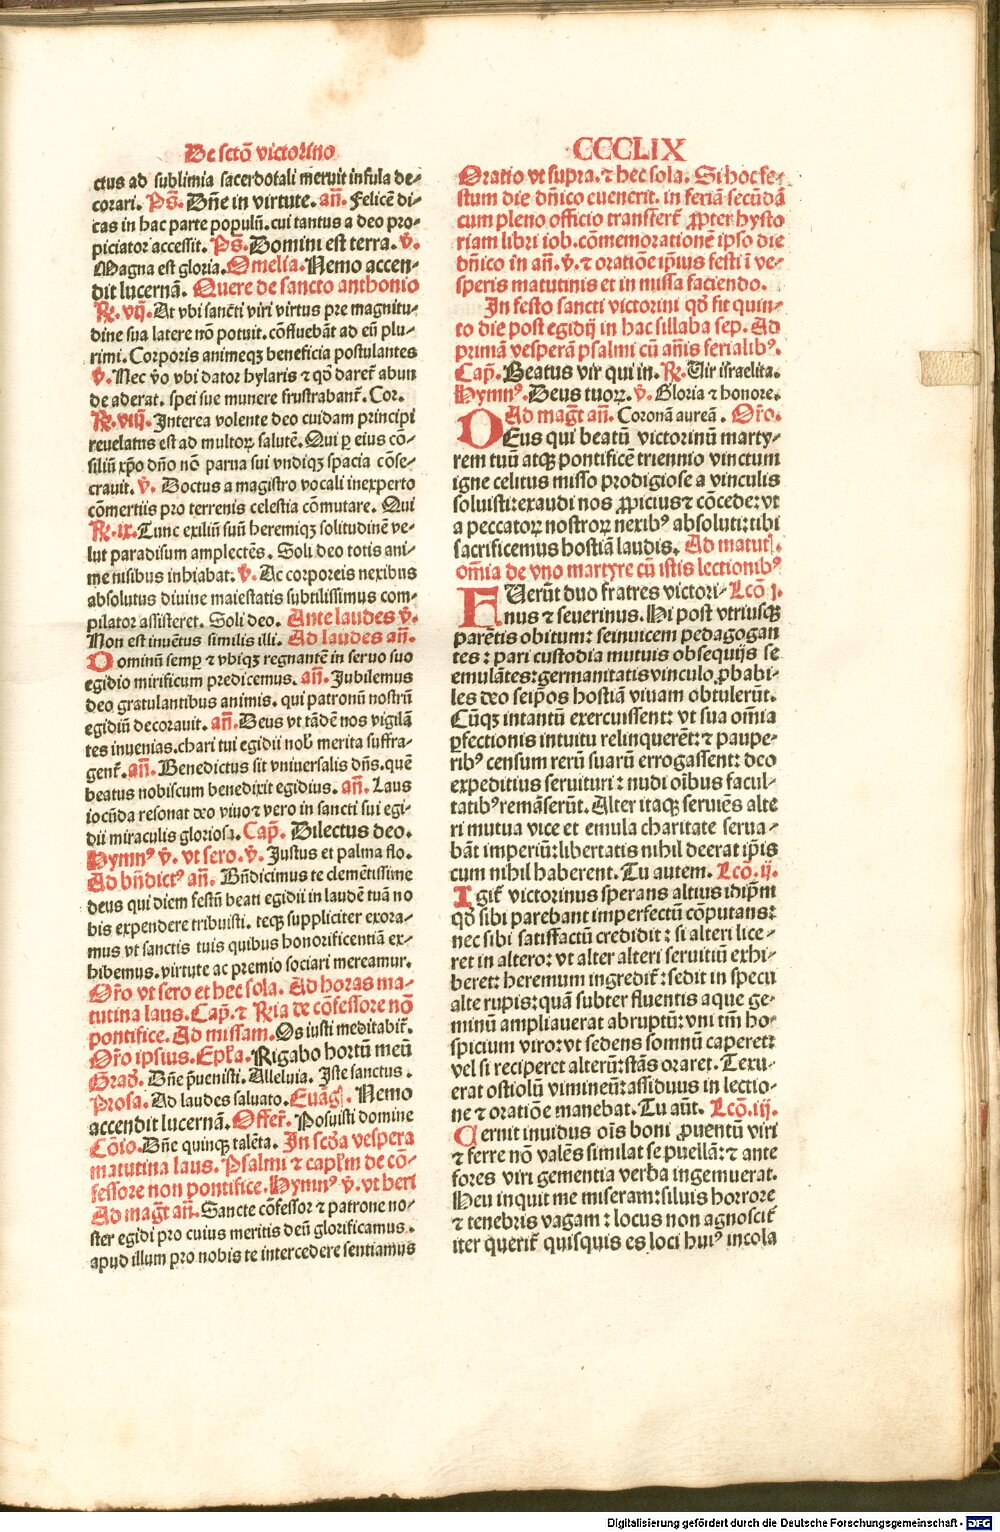 De sctō victorino
ctus ad sublimia sacerdotali meruit infula de-
corari. Ps̄. Dn̄e in virtute. an̄. Felicē di-
cas in hac parte populū. cui tantus a deo pro-
piciator accessit. Ps̄. Domini est terra. v̄.
Magna est gloria. Omelia. Nemo accen-
dit lucernā. Quere de sancto anthonio
R̄. vij. At vbi sancti viri virtus pre magnitu-
dine sua latere nō potuit. cōfluebāt ad eū plu-
rimi. Corporis animeqꝫ beneficia postulantes
v̄. Nec v̄o vbi dator hylaris ⁊ qō daret᷑ abun
de aderat. spei sue munere frustrabant᷑. Cor.
R̄. viij. Interea volente deo cuidam principi
reuelatus est ad multoꝝ salutē. Qui ꝑ eius cō-
siliū xp̄o dn̄o nō parua sui vndiqꝫ spacia cōse-
crauit. v̄. Doctus a magistro vocali inexperto
cōmertiis pro terrenis celestia cōmutare. Qui
R̄. ix. Tunc exiliū suū heremiqꝫ solitudinē ve-
lut paradisum amplectēs. Soli deo totis ani-
me nisibus inhiabat. v̄. Ac corporeis nexibus
absolutus diuine maiestatis subtilissimus com-
pilator assisteret. Soli deo. Ante laudes v̄.
Non est inuētus similis illi. Ad laudes an̄.
Dominū semꝑ ⁊ vbiqꝫ regnantē in seruo suo
egidio mirificum predicemus. an̄. Jubilemus
deo gratulantibus animis. qui patronū nostrū
egidiū decorauit. an̄. Deus vt tādē nos vigilā
tes inuenias. chari tui egidii nob᷑ merita suffra-
gent᷑. an̄. Benedictus sit vniuersalis dn̄s. quē
beatus nobiscum benedixit egidius. an̄. Laus
iocūda resonat deo viuo ⁊ vero in sancti sui egi-
dii miraculis gloriosa. Cap̄. Dilectus deo.
Hymnꝰ v̄. vt sero. v̄. Justus et palma flo.
Ad bn̄dictꝰ an̄. Bn̄dicimus te clemētissime
deus qui diem festū beati egidii in laudē tuā no
bis expendere tribuisti. teqꝫ suppliciter exora-
mus vt sanctis tuis quibus honorificentiā ex-
hibemus. virtute ac premio sociari mereamur.
Or̄o vt sero et hec sola. Ad horas ma-
tutina laus. Cap̄. ⁊ R̄ia de cōfessore nō
pontifice. Ad missam. Os iusti meditabit᷑.
Or̄o ipsius. Ep̄la. Rigabo hortū meū
Grad᷑. Dn̄e p̄uenisti. Alleluia. Iste sanctus.
Prosa. Ad laudes saluato. Euāg̃. Nemo
accendit lucernā. Offer̄. Posuisti domine
Cōio. Dn̄e quinqꝫ talēta. In scd̄a vespera
matutina laus. Psalmi ⁊ cap̄lm de cō-
fessore non pontifice. Hymnꝰ v̄. vt heri
Ad magt̄ an̄. Sancte cōfessor ⁊ patrone no-
ster egidi pro cuius meritis deū glorificamus.
apud illum pro nobis te intercedere sentiamus
CCCLIX
Oratio vt supra. ⁊ hec sola. Si hoc fe-
stum die dn̄ico euenerit. in feriā secūdā
cum pleno officio transfert᷑ ꝓpter hysto
riam libri iob. cōmemorationē ipso die
dn̄ico in an̄. v̄. ⁊ oratiōe ip̄ius festi ī ve-
speris matutinis et in missa faciendo.
In festo sancti victorini qd̄ fit quin-
to die post egidij in hac sillaba sep. Ad
primā vesperā psalmi cū an̄is ferialibꝰ.
Cap̄. Beatus vir qui in. R̄. Vir israelita.
Hymnꝰ. Deus tuoꝝ. v̄. Gloria ⁊ honore.
Ad magt̄ an̄. Coronā aureā. Or̄o.
DEus qui beatū victorinū marty-
rem tuū atqꝫ pontificē triennio vinctum
igne celitus misso prodigiose a vinculis
soluisti: exaudi nos ꝓpicius ⁊ cōcede: vt
a peccatoꝝ nostroꝝ nexibꝰ absoluti: tibi
sacrificemus hostiā laudis. Ad matut᷑.
om̄ia de vno martyre cū istis lectionibꝰ
FVerūt duo fratres victori- Lcō j.
nus ⁊ seuerinus. Hi post vtriusqꝫ
parētis obitum: seinuicem pedagogan
tes: pari custodia mutuis obsequijs se
emulātes: germanitatis vinculo ꝓbabi-
les deo seip̄os hostiā viuam obtulerūt.
Cūqꝫ intantū exercuissent: vt sua om̄ia
ꝑfectionis intuitu relinquerēt: ⁊ paupe-
ribꝰ censum rerū suarū errogassent: deo
expeditius seruituri: nudi oībus facul-
tatibꝰ remāserūt. Alter itaqꝫ seruiēs alte
ri mutua vice et emula charitate serua-
bāt imperiū: libertatis nihil deerat ip̄is
cum nihil haberent. Tu autem. Lcō. ij.
Igit᷑ victorinus sperans altius idip̄m
qd̄ sibi parebant imperfectū cōputans:
nec sibi satisfactū credidit: si alteri lice-
ret in altero: vt alter alteri seruitiū exhi-
beret: heremum ingredit᷑: sedit in specu
alte rupis: quā subter fluentis aque ge-
minū ampliauerat abruptū: vni tm̄ ho-
spicium viro: vt sedens somnū caperet:
vel si reciperet alterū: stās oraret. Texu-
erat ostiolū vimineū: assiduus in lectio-
ne ⁊ oratiōe manebat. Tu aūt. Lcō. iij.
Cernit inuidus oīs boni ꝓuentū viri
⁊ ferre nō valēs similat se puellā: ⁊ ante
fores viri gementia verba ingemuerat.
Heu inquit me miseram: siluis horrore
⁊ tenebris vagam: locus non agnoscit᷑
iter querit᷑ quisquis es loci huiꝰ incola
Digitalisierung gefördert durch die Deutsche Forschungsgemeinschaft - DFG